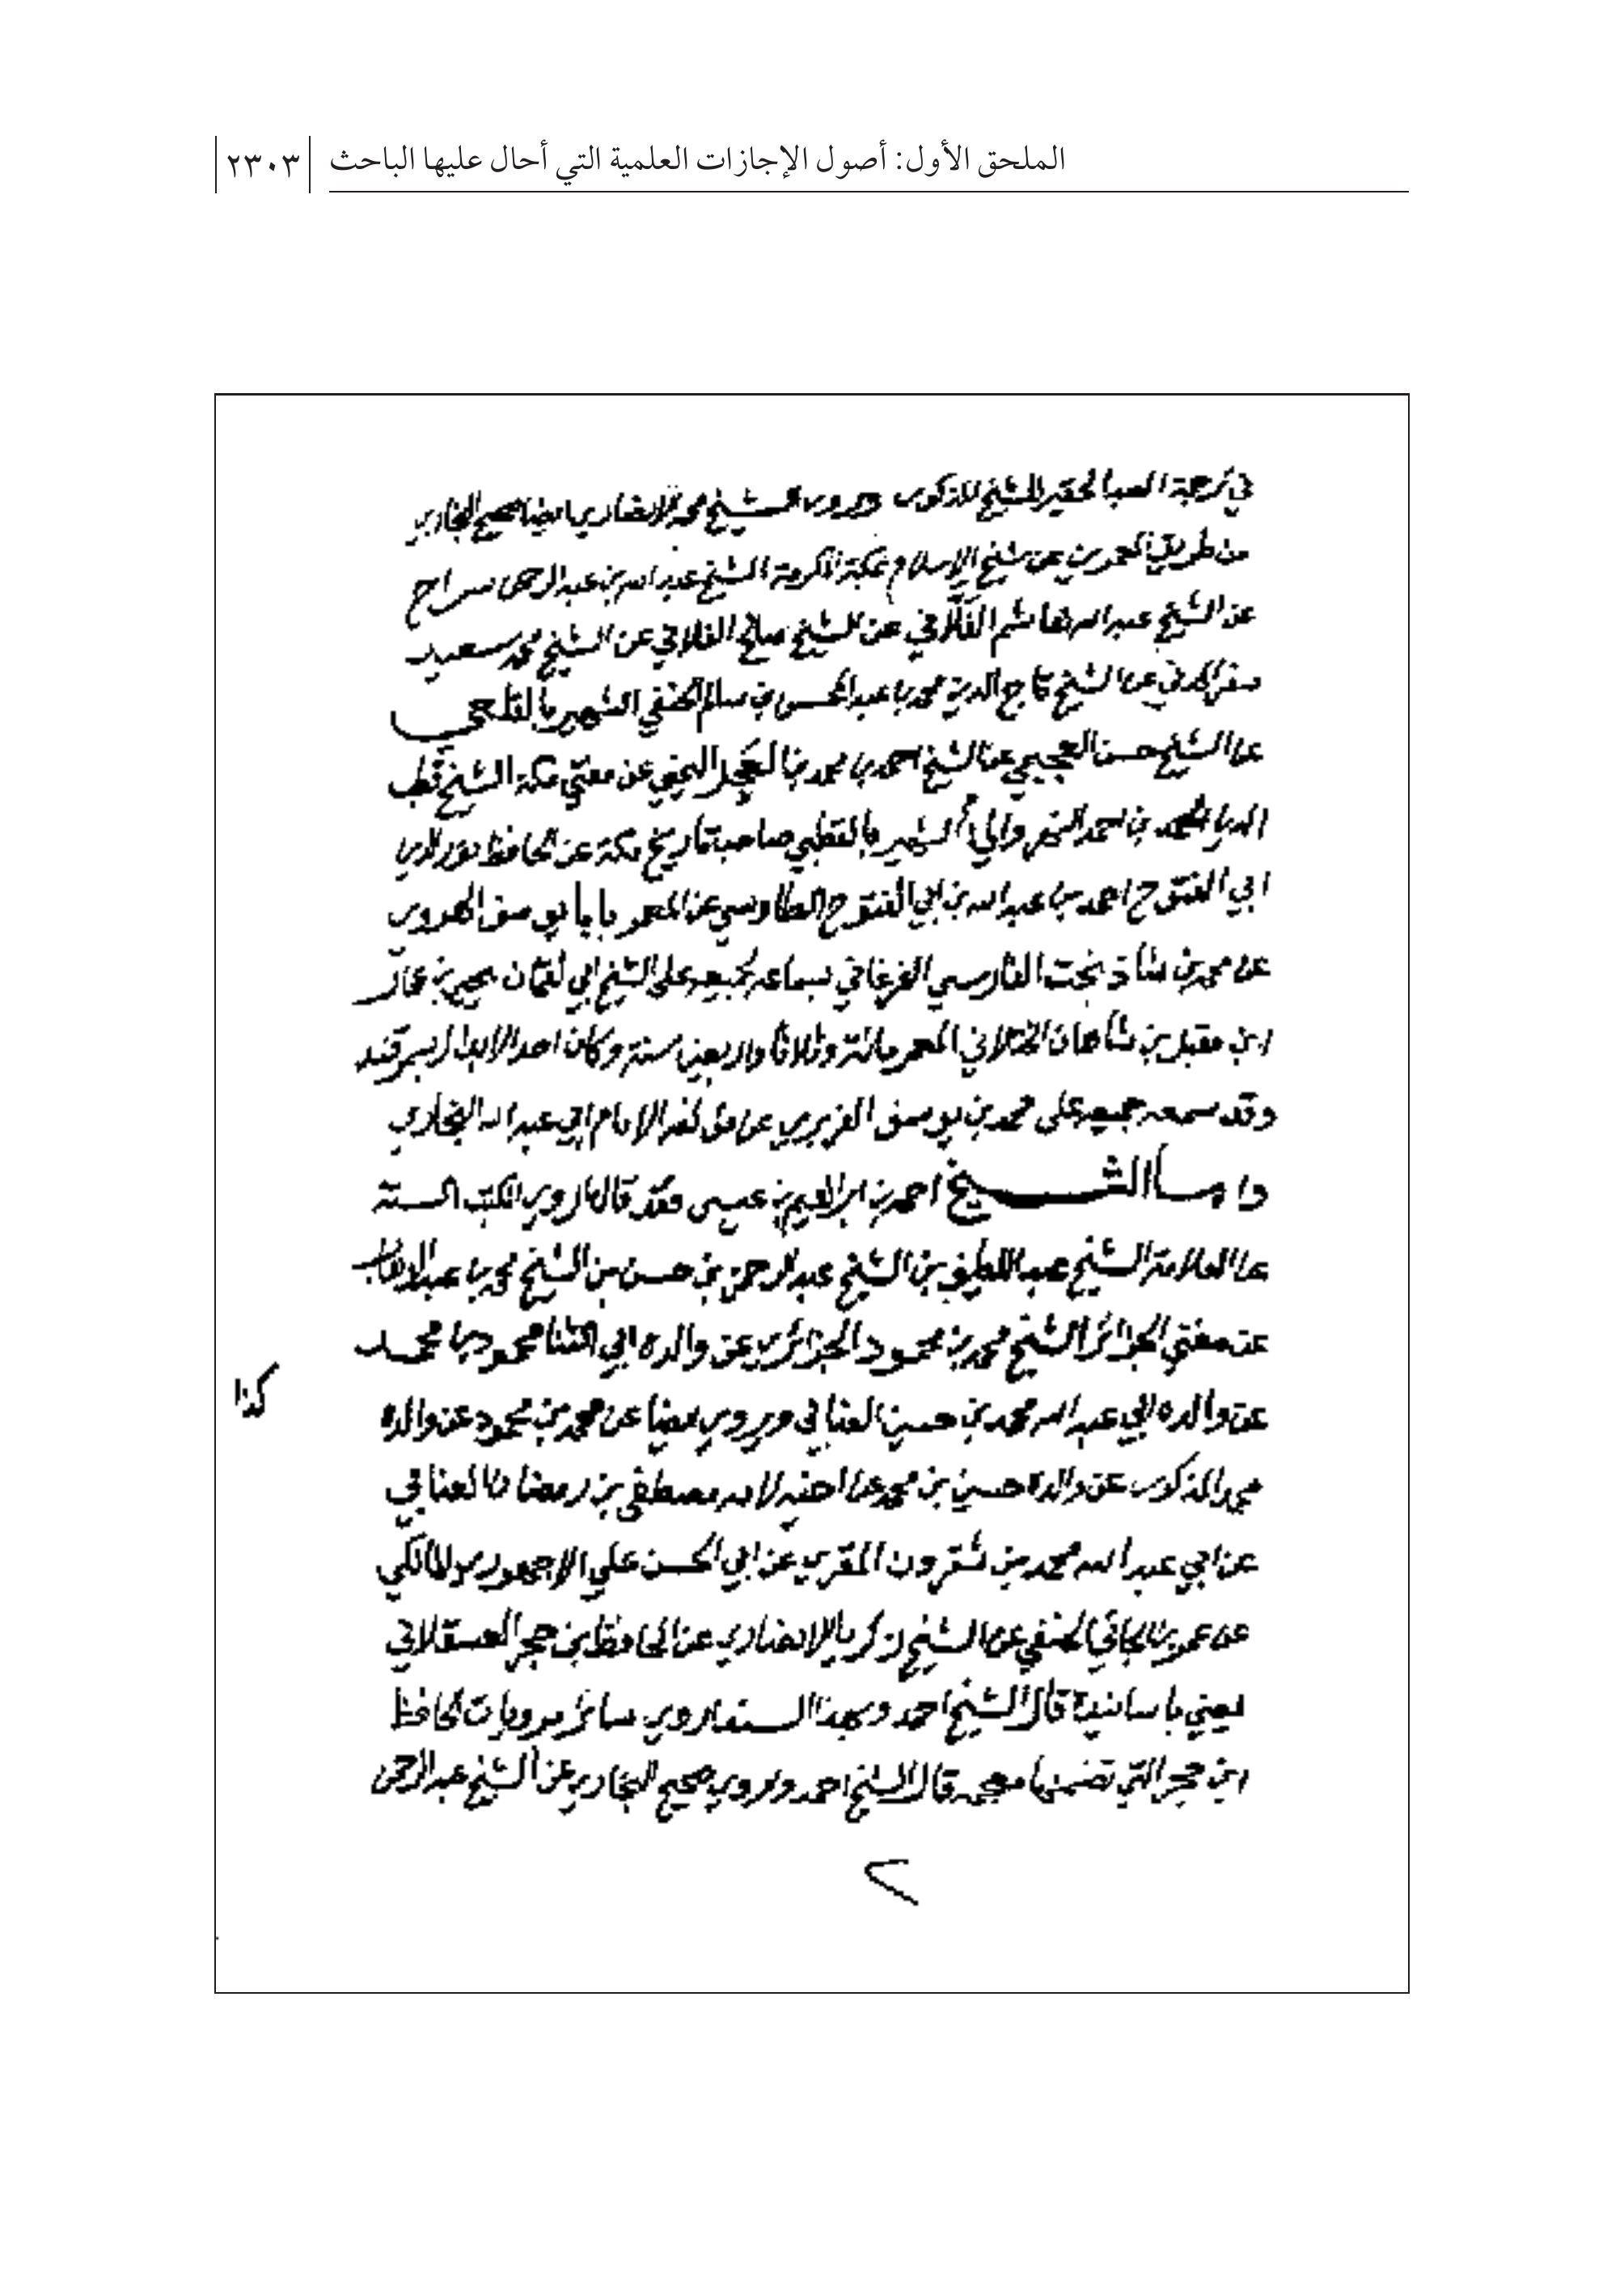 الملحق الأول: أصول الإجازات العلمية التي أحال عليها الباحث ٢٣٠٣
في ترجمة العبد الحقير للشيخ المذكور ويروي الشيخ محمد الانصاري ايضا صحيح البخاري
من طريق المعمرين عن شيخ الإسلام بمكة المكرمة الشيخ عبد الله بن عبد الرحمن سراج
عن الشيخ عبد الله هاشم الفلاني عن الشيخ صالح الفلاني عن الشيخ محمد سعيد
سفر المدني عن الشيخ تاج الدين محمد بن عبد المحسن بن سالم الحنفي الشهير بالقلعي
عن الشيخ حسن العجيمي عن الشيخ احمد بن محمد بن العجل اليمني عن مفتي مكة الشيخ قطب
الدين محمد بن احمد النهروالي الشهير بالقطبي صاحب تاريخ مكة عن الحافظ نور الدين
ابي الفتوح احمد بن عبد الله بن ابي الفتوح الطاوسي عن المعمر بابا يوسف الهروي
عن محمد بن شاذ بخت الفارسي الفرغاني بسماعه لجميعه على الشيخ ابي لقمان يحيى بن عمار
ابن مقبل بن شاهان الختلاني المعمر مائة وثلاثا واربعين سنة وكان احد الابدال بسمرقند
وقد سمعه جميعه على محمد بن يوسف الفربري عن مؤلفه الامام ابي عبد الله البخاري
واما الشيخ احمد بن ابراهيم بن عيسى فقد قال اروي الكتب الستة
عن العلامة الشيخ عبد اللطيف بن الشيخ عبد الرحمن بن حسن بن الشيخ محمد بن عبد الوهاب
عن مفتي الجزائر الشيخ محمد بن محمود الجزائري عن والده ابي الثنا محمود بن محمد
كذا
عن والده ابي عبد الله محمد بن حسين العنابي ويروي ايضا عن محمد بن محمود عن والده
المذكور عن والده حسين بن محمد عن اخيه لامه مصطفى بن رمضان العنابي
عن ابي عبد الله محمد بن شقرون المقري عن ابي الحسن علي الاجهوري المالكي
عن عمر بن الجائي الحنفي عن الشيخ زكريا الانصاري عن الحافظ بن حجر العسقلاني
يعني باسانيده قال الشيخ احمد وبهذا السند اروي سائر مرويات الحافظ
ابن حجر التي تضمنها معجمه قال الشيخ احمد واروي صحيح البخاري عن الشيخ عبد الرحمن